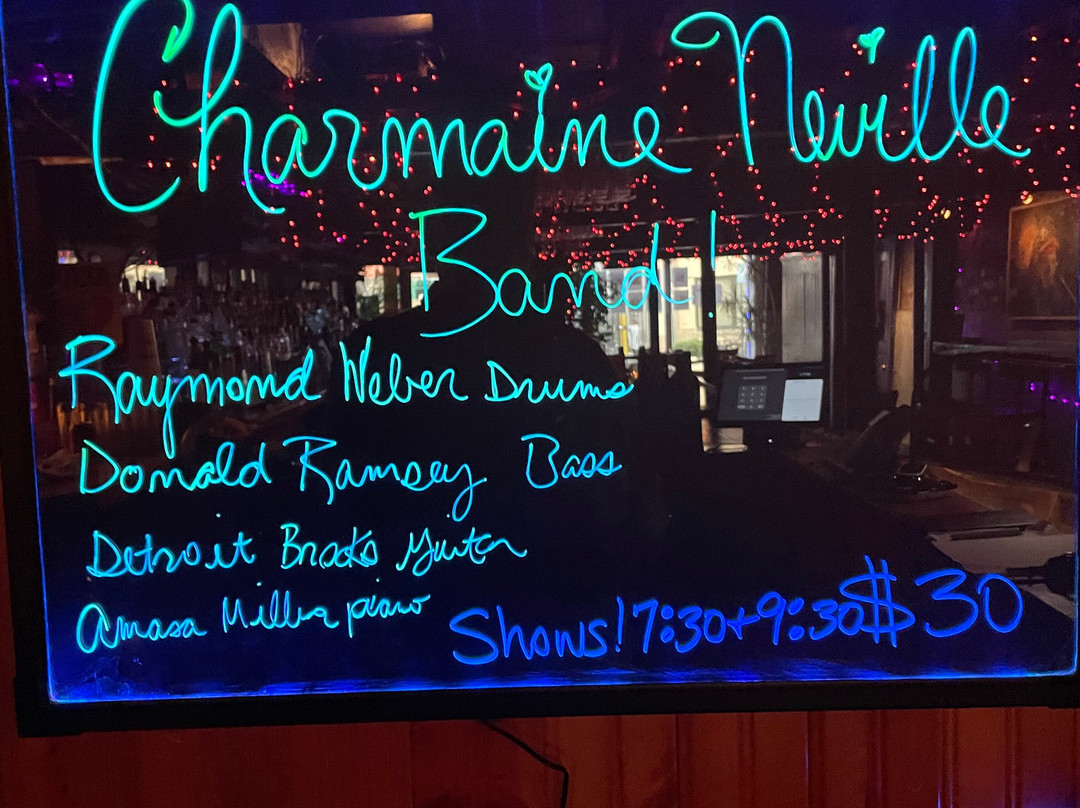 Charmaine Neville
Band!
Raymond Weber Drums
Donald Ramsey Bass
Detroit Brooks Guitar
Amasa Miller piano
Shows! 7:30+9:30 $30